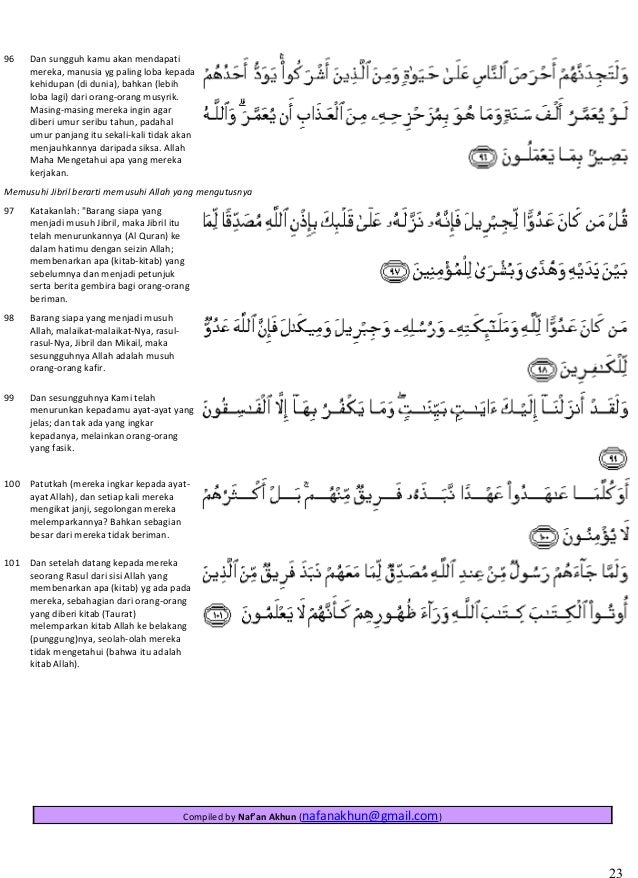 96 Dan sungguh kamu akan mendapati
mereka, manusia yg paling loba kepada
kehidupan (di dunia), bahkan (lebih
loba lagi) dari orang-orang musyrik.
Masing-masing mereka ingin agar
diberi umur seribu tahun, padahal
umur panjang itu sekali-kali tidak akan
menjauhkannya daripada siksa. Allah
Maha Mengetahui apa yang mereka
kerjakan.
وَلَتَجِدَنَّهُمْ أَحْرَصَ ٱلنَّاسِ عَلَىٰ حَيَوٰةٍ وَمِنَ ٱلَّذِينَ أَشْرَكُوا۟ ۚ يَوَدُّ أَحَدُهُمْ
لَوْ يُعَمَّرُ أَلْفَ سَنَةٍ وَمَا هُوَ بِمُزَحْزِحِهِۦ مِنَ ٱلْعَذَابِ أَن يُعَمَّرَ ۗ وَٱللَّهُ
بَصِيرٌۢ بِمَا يَعْمَلُونَ ٩٦
Memusuhi Jibril berarti memusuhi Allah yang mengutusnya
97 Katakanlah: "Barang siapa yang
menjadi musuh Jibril, maka Jibril itu
telah menurunkannya (Al Quran) ke
dalam hatimu dengan seizin Allah;
membenarkan apa (kitab-kitab) yang
sebelumnya dan menjadi petunjuk
serta berita gembira bagi orang-orang
beriman.
قُلْ مَن كَانَ عَدُوًّا لِّجِبْرِيلَ فَإِنَّهُۥ نَزَّلَهُۥ عَلَىٰ قَلْبِكَ بِإِذْنِ ٱللَّهِ مُصَدِّقًا لِّمَا
بَيْنَ يَدَيْهِ وَهُدًى وَبُشْرَىٰ لِلْمُؤْمِنِينَ ٩٧
98 Barang siapa yang menjadi musuh
Allah, malaikat-malaikat-Nya, rasul-
rasul-Nya, Jibril dan Mikail, maka
sesungguhnya Allah adalah musuh
orang-orang kafir.
مَن كَانَ عَدُوًّا لِّلَّهِ وَمَلَٰٓئِكَتِهِۦ وَرُسُلِهِۦ وَجِبْرِيلَ وَمِيكَىٰلَ فَإِنَّ ٱللَّهَ عَدُوٌّ
لِّلْكَٰفِرِينَ ٩٨
99 Dan sesungguhnya Kami telah
menurunkan kepadamu ayat-ayat yang
jelas; dan tak ada yang ingkar
kepadanya, melainkan orang-orang
yang fasik.
وَلَقَدْ أَنزَلْنَآ إِلَيْكَ ءَايَٰتٍۭ بَيِّنَٰتٍ ۖ وَمَا يَكْفُرُ بِهَآ إِلَّا ٱلْفَٰسِقُونَ
٩٩
100 Patutkah (mereka ingkar kepada ayat-
ayat Allah), dan setiap kali mereka
mengikat janji, segolongan mereka
melemparkannya? Bahkan sebagian
besar dari mereka tidak beriman.
أَوَكُلَّمَا عَٰهَدُوا۟ عَهْدًا نَّبَذَهُۥ فَرِيقٌ مِّنْهُم ۚ بَلْ أَكْثَرُهُمْ
لَا يُؤْمِنُونَ ١٠٠
101 Dan setelah datang kepada mereka
seorang Rasul dari sisi Allah yang
membenarkan apa (kitab) yg ada pada
mereka, sebahagian dari orang-orang
yang diberi kitab (Taurat)
melemparkan kitab Allah ke belakang
(punggung)nya, seolah-olah mereka
tidak mengetahui (bahwa itu adalah
kitab Allah).
وَلَمَّا جَآءَهُمْ رَسُولٌ مِّنْ عِندِ ٱللَّهِ مُصَدِّقٌ لِّمَا مَعَهُمْ نَبَذَ فَرِيقٌ مِّنَ ٱلَّذِينَ
أُوتُوا۟ ٱلْكِتَٰبَ كِتَٰبَ ٱللَّهِ وَرَآءَ ظُهُورِهِمْ كَأَنَّهُمْ لَا يَعْلَمُونَ ١٠١
Compiled by Naf'an Akhun (nafanakhun@gmail.com)
23